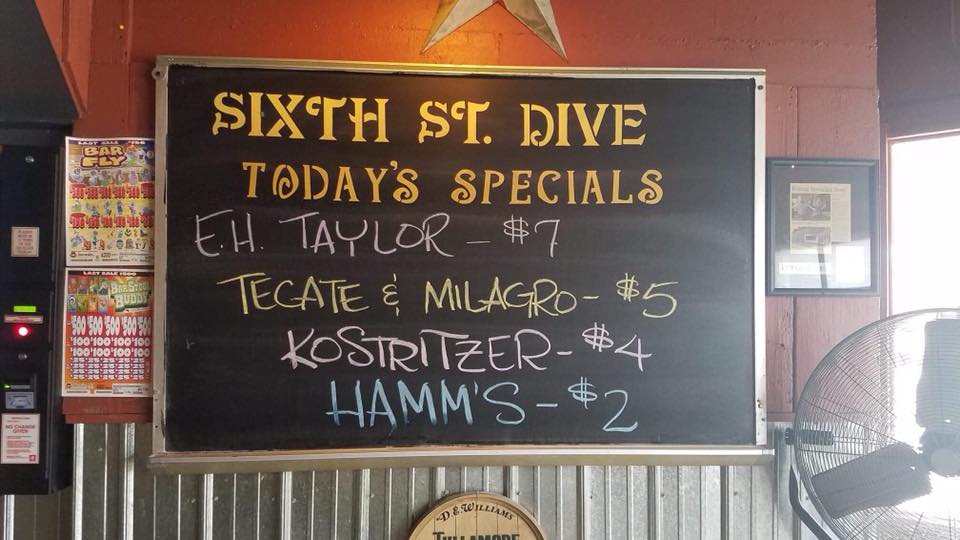 SIXTH ST. DIVE
TODAY'S SPECIALS
E.H. TAYLOR – $7
TECATE & MILAGRO – $5
KOSTRITZER – $4
HAMM'S – $2
LAST SALE
BAR FLY
LAST SALE $500
BAR STOOL BUDDY
$500 $500 $500 $500 $500
NO CHANGE GIVEN
D.E. WILLIAMS
TULLAMORE